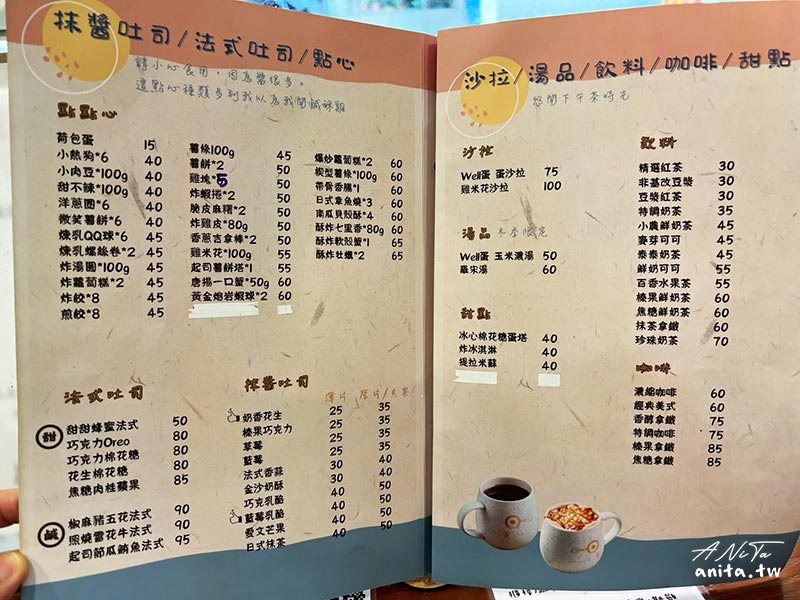 抹醬吐司/法式吐司/點心
請小心食用，因為醬很多。
這點心種類多到我以為我開鹹酥雞
點點心
荷包蛋 15
小熱狗*6 40
小肉豆*100g 40
甜不辣*100g 40
洋蔥圈*6 40
微笑薯餅*6 40
煉乳QQ球*6 45
煉乳螺絲卷*2 45
炸湯圓*100g 45
炸蘿蔔糕*2 45
炸餃*8 45
煎餃*8 45
薯條100g 45
薯餅*2 50
雞塊*5 50
炸蝦捲*2 50
脆皮麻糬*2 50
炸雞皮*80g 50
香蔥吉拿棒*2 50
雞米花*100g 55
起司薯餅塔*1 55
唐揚一口蟹*50g 60
黃金熔岩蝦球*2 60
爆炒蘿蔔糕*2 60
楔型薯條*100g 60
帶骨香腸*1 60
日式章魚燒*3 60
南瓜貝殼酥*4 60
酥炸七里香*80g 60
酥炸軟殼蟹*1 65
酥炸牡蠣*2 65
法式吐司
甜
甜甜蜂蜜法式 50
巧克力Oreo 80
巧克力棉花糖 80
花生棉花糖 80
焦糖肉桂蘋果 85
鹹
椒麻豬五花法式 90
照燒雪花牛法式 90
起司節瓜鮪魚法式 95
抹醬吐司
薄片 厚片/貝果
奶香花生 25 35
榛果巧克力 25 35
草莓 25 35
藍莓 25 35
法式香蒜 30 40
金沙奶酥 30 40
巧克乳酪 40 50
藍莓乳酪 40 50
愛文芒果 40 50
日式抹茶 40 50
沙拉/湯品/飲料/咖啡/甜點
悠閒下午茶時光
沙拉
Well蛋 蛋沙拉 75
雞米花沙拉 100
湯品 冬季限定
Well蛋 玉米濃湯 50
羅宋湯 60
甜點
冰心棉花糖蛋塔 40
炸冰淇淋 40
提拉米蘇 40
飲料
精選紅茶 30
非基改豆漿 30
豆漿紅茶 30
特調奶茶 35
小農鮮奶茶 45
麥芽可可 45
泰泰奶茶 45
鮮奶可可 55
百香水果茶 55
榛果鮮奶茶 60
焦糖鮮奶茶 60
抹茶拿鐵 60
珍珠奶茶 70
咖啡
濃縮咖啡 60
經典美式 60
香醇拿鐵 75
特調咖啡 75
榛果拿鐵 85
焦糖拿鐵 85
ANiTa
anita.tw